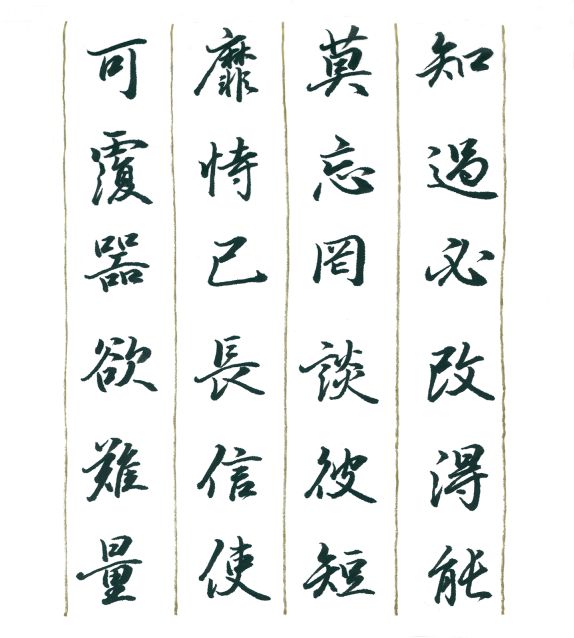 知過必改得能
莫忘罔談彼短
靡恃己長信使
可覆器欲難量